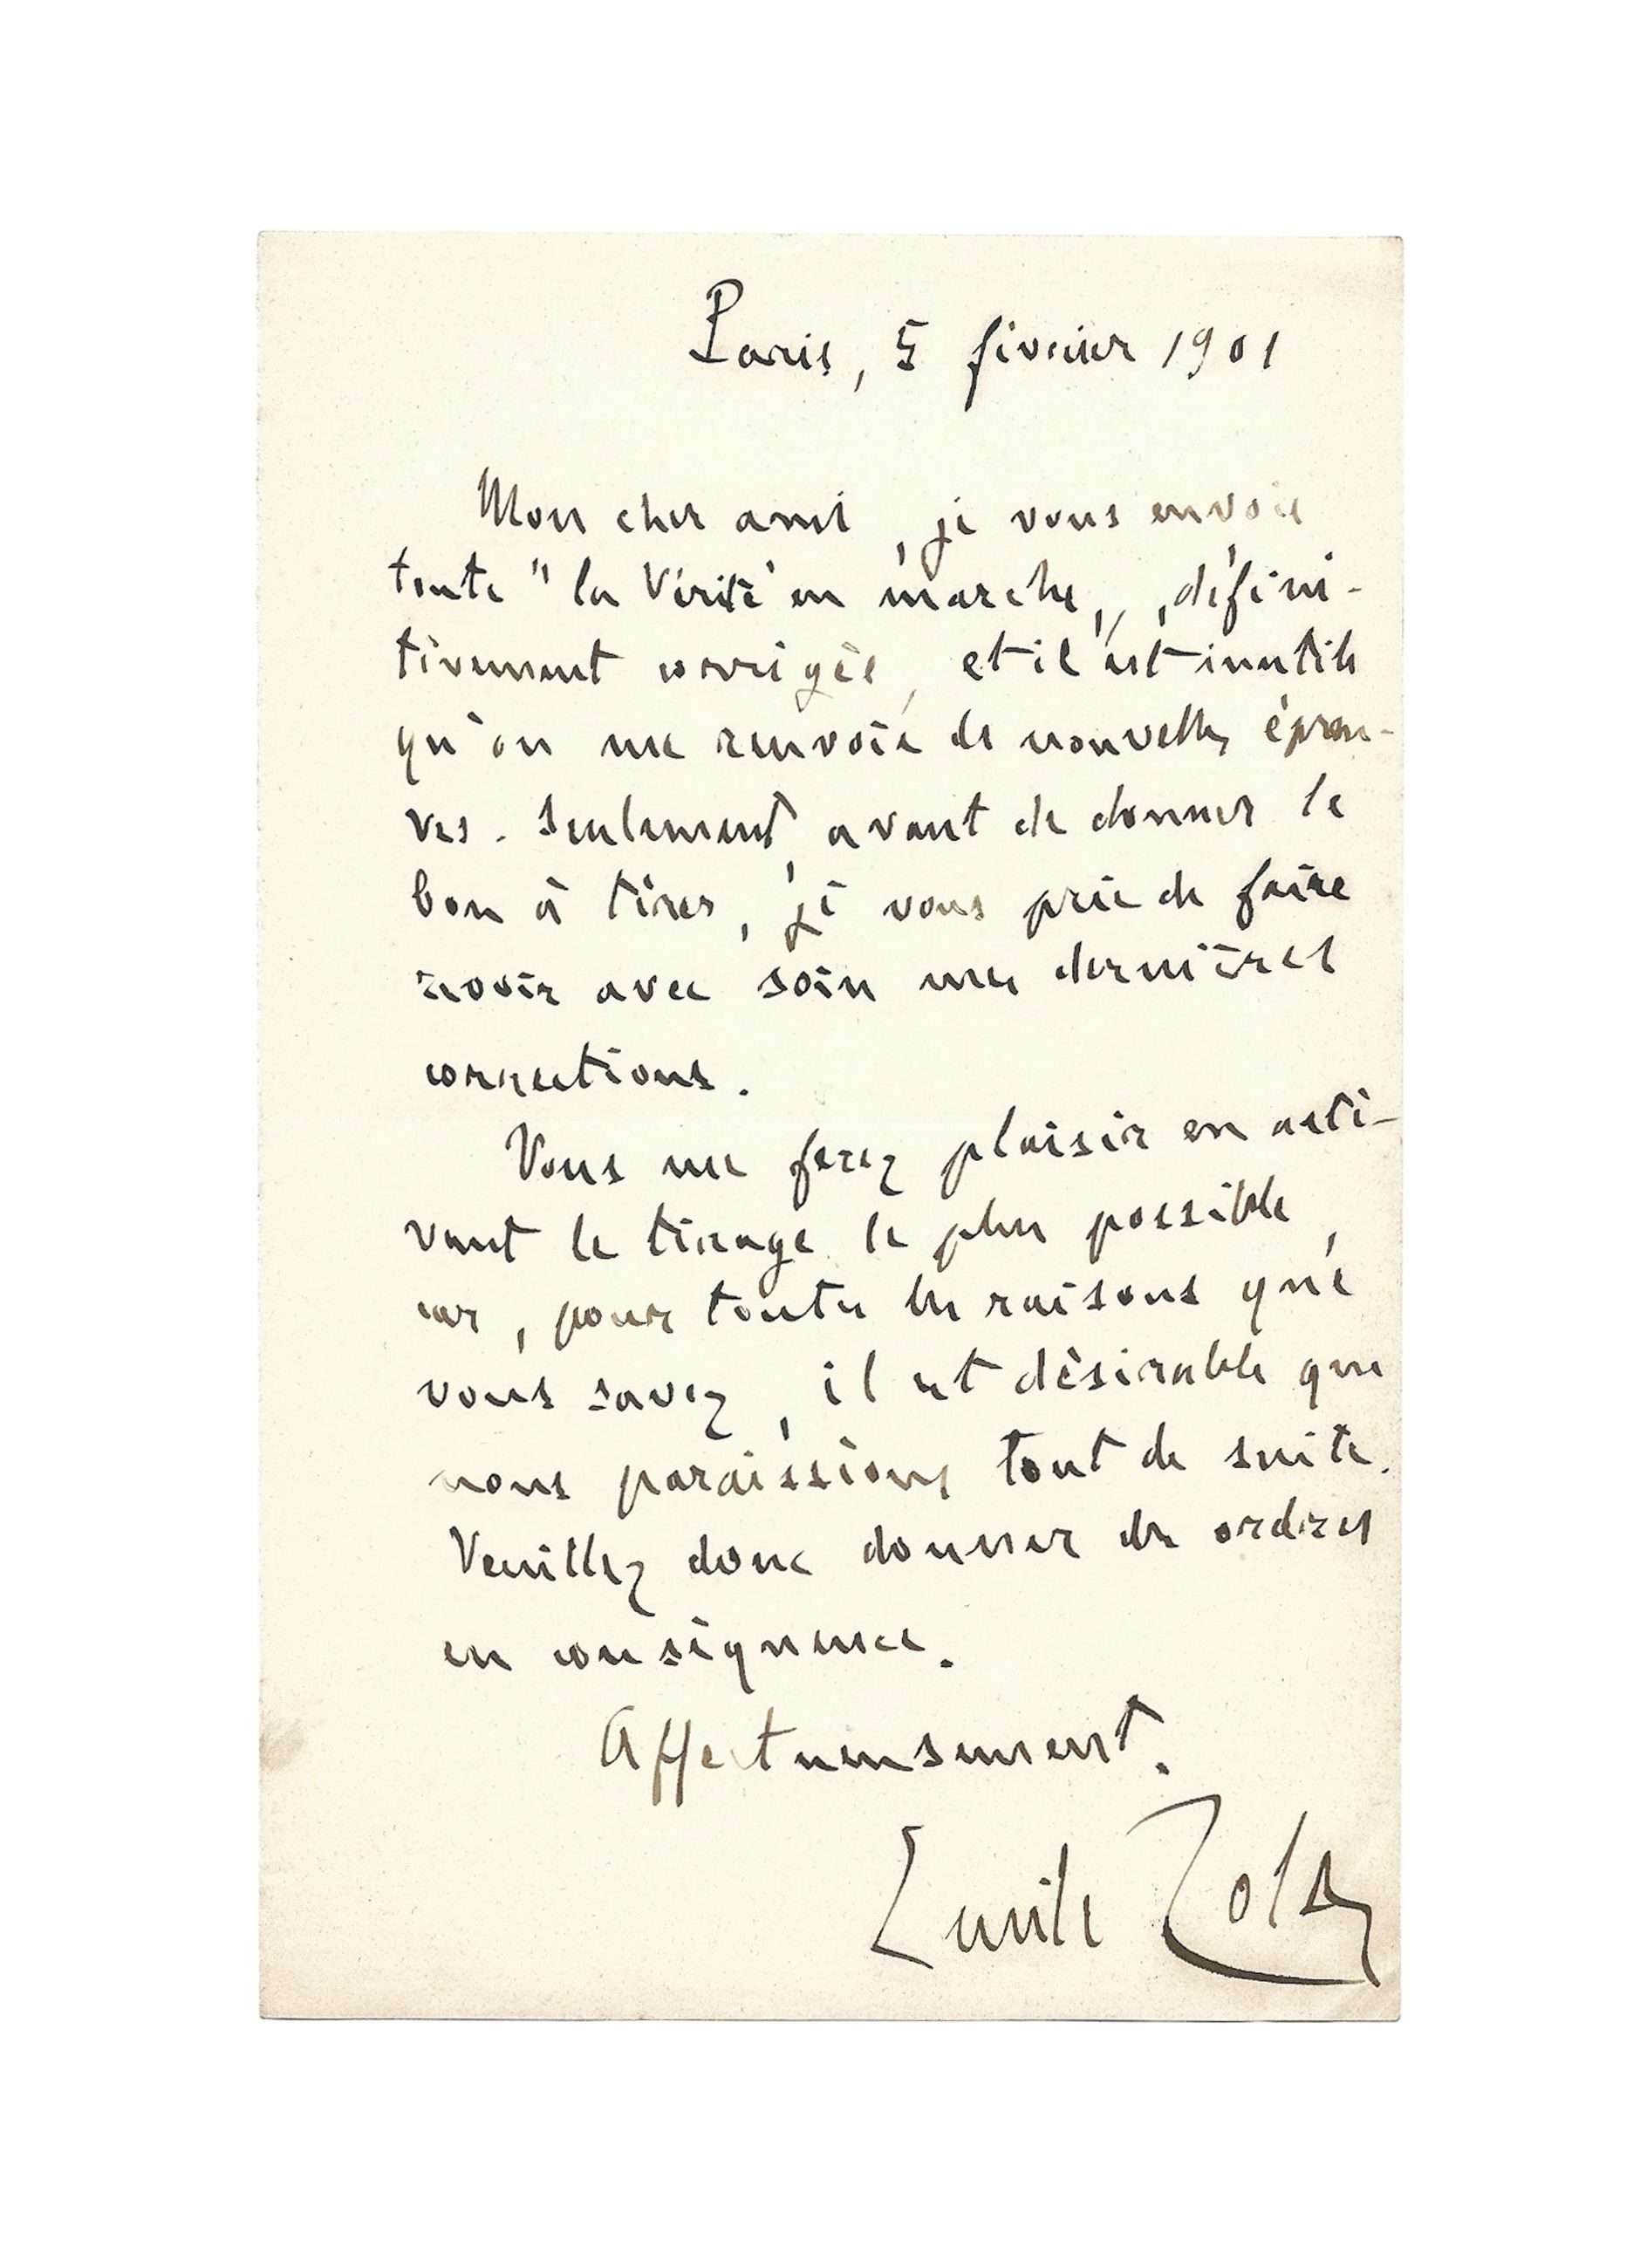 Paris, 5 février 1901
Mon cher ami, je vous envoie
toute "la Vérité en marche", défini-
tivement corrigée, et il est inutile
qu'on me renvoie de nouvelles épreu-
ves. Seulement, avant de donner le
bon à tirer, je vous prie de faire
revoir avec soin mes dernières
corrections.
Vous me ferez plaisir en acti-
vant le tirage le plus possible,
car, pour toutes les raisons que
vous savez, il est désirable que
nous paraissions tout de suite.
Veuillez donc donner des ordres
en conséquence.
Affectueusement.
Emile Zola